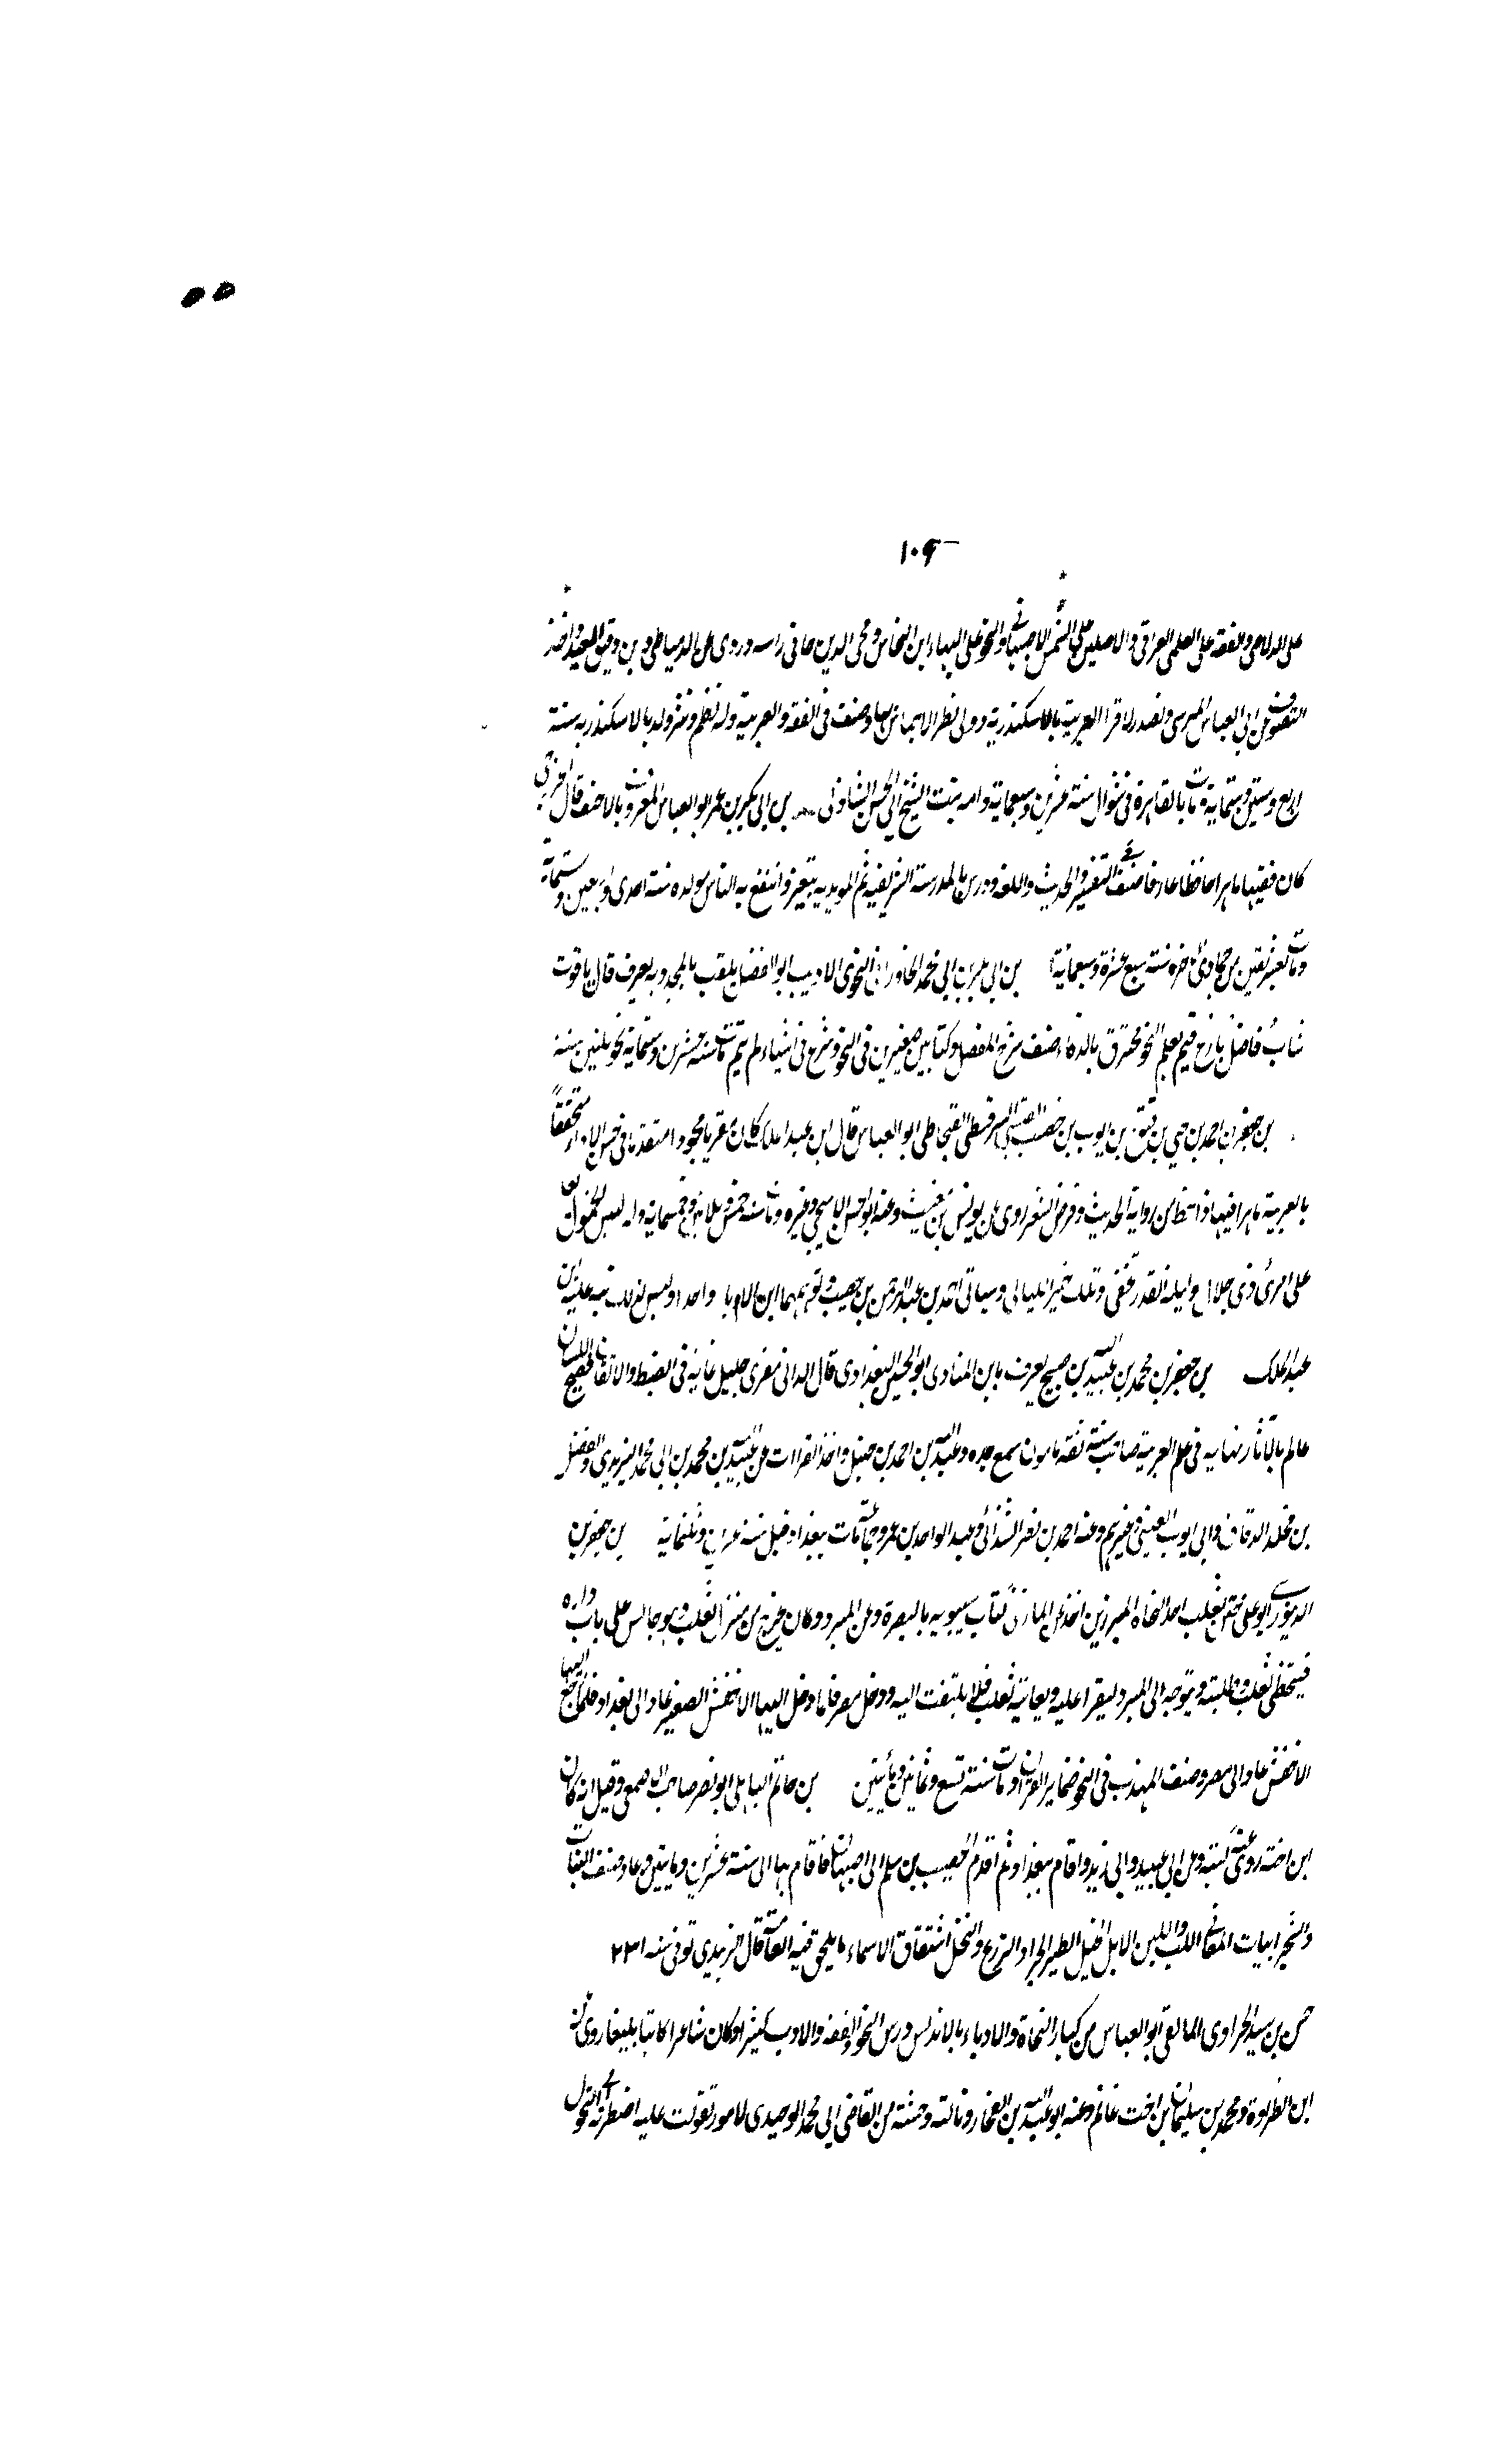 ١٠٩
على الدلاصي والفقه على العلم العراقي والاصلين على الشمس الاصبهاني والنحو على البهاء ابن النحاس ومحي الدين حافي راسه وروى عن الدمياطي وبن دقيق العيد واخذ
التصوف عن ابي العباس المرسي وتصدر لاقرا العربية بالاسكندرية وولي نظر الاحباس بها وصنف في الفقه والعربية وله نظم ونثر ولد بالاسكندريه سنة
اربع وستين وستمائة ومات بالقاهرة في شوال سنة عشرين وسبعمائة وامه بنت الشيخ ابي الحسن الشاذلي بن ابي بكر بن عمر ابو العباس المعروف بالاحنف قال الخزرجي
كان فقيها ماهرا حافظا عارفا صنف في التفسير والحديث واللغة ودرس بالمدرسة الشريفية ثم المويديه بتعز وانتفع به الناس مولده سنة احدى واربعين وستمائة
ومات بتعز بقين من جمادى الاخره سنة سبع عشرة وسبعمائة بن ابي بكر بن ابي محمد الخاوراني النحوى الاديب ابو الفضل يلقب بالمجد وبه يعرف قال ياقوت
شابٌ فاضلٌ بارع قيم بعلم النحو محترق بالذكاء صنف شرح المفصل وكتابين صغيرين في النحو وشرع في اشياء لم تتم مات سنة عشرين وستمائة نحو ثلثين سنة
بن جعفر بن احمد بن يحيى بن فتوح بن ايوب بن خصيب القيسي السرقسطي القيجاطي ابو العباس قال ابن عبد الملك كان مقريا مجودا متقدما في حسن الاداء متحققاً
بالعربية ماهرا فيها ذا حظ من رواية الحديث وقرض الشعر روى عن يونس بن مغيث وعنه ابو الحسن الاستجي وغيره ومات سنة خمس وثلاثين وخمسمائة وله ليس الخمول بعار
على امرئ ذي جلال وليلة القدر تخفى وتلك خير الليالي وسياتي احمد بن عبد الرحمن بن خصيب توهمهما ابن الابار واحدا وليس كذلك نبه عليه ابن
عبد الملك بن جعفر بن محمد بن عبيد الله بن صبيح يعرف بابن المنادى ابو الحسين البغدادى قال الدانى مقرى جليل غاية فى الضبط والاتقان فصيح اللسان
عالم بالآثار نهايه في علم العربية صاحب سنة ثقه مامون سمع جده وعبد الله بن احمد بن حنبل واخذ القراات عن عبيد الله بن محمد بن ابي محمد اليزيدي والفضل
بن مخلد الدقاق وابي ايوب الضبي وغيرهم وعنه احمد بن نصر الشذائي وعبد الواحد بن عمر وجماعة مات ببغداد قبل سنة عشرين وثلثمائة بن جعفر بن
الدينورى ابو علي ختن ثعلب احد النحاه المبرزين اخذ عن المازني كتاب سيبويه بالبصرة وعن المبرد وكان يخرج من منزل ثعلب وهو جالس على باب داره
فيتخطى ثعلب وطلبته ويتوجه الى المبرد ليقرا عليه ويعاتبه ثعلب فلا يلتفت اليه ودخل مصر فلما دخل اليها الاخفش الصغير عاد الى بغداد فلما رجع اليها
الاخفش عاد الى مصر وصنف المهذب في النحو ضماير القران ومات سنة تسع وثمانين ومأيتين بن حاتم الباهلي ابو نصر صاحب الاصمعي وقيل انه كان
ابن اخته روى عنه كتبه وعن ابي عبيد وابي زيد واقام ببغداد ثم اقدم الخصيب بن سلم الى اصبهان فاقام بها الى سنة عشرين ومايتين وعاد وصنف النبات
والشجر ابيات المعاني اللبا واللبن الابل الخيل الطير الجراد الزرع والنخل اشتقاق الاسماء ما يلحن فيه العامة قال الزبيدي توفي سنه ٢٣١
حسن بن سيد الجراوى المالقى ابو العباس من كبار النحاة والادباء بالاندلس درس النحو والفقه والادب كثيرا وكان شاعرا كاتبا بليغا روى عنه
ابن الطراوة ومحمد بن سليمان بن اخت غانم وعنه ابو عبد الله بن الفخار ونالته وحشة من القاضي ابي محمد الوحيدى لامور تقولت عليه اضطرته الى التحول